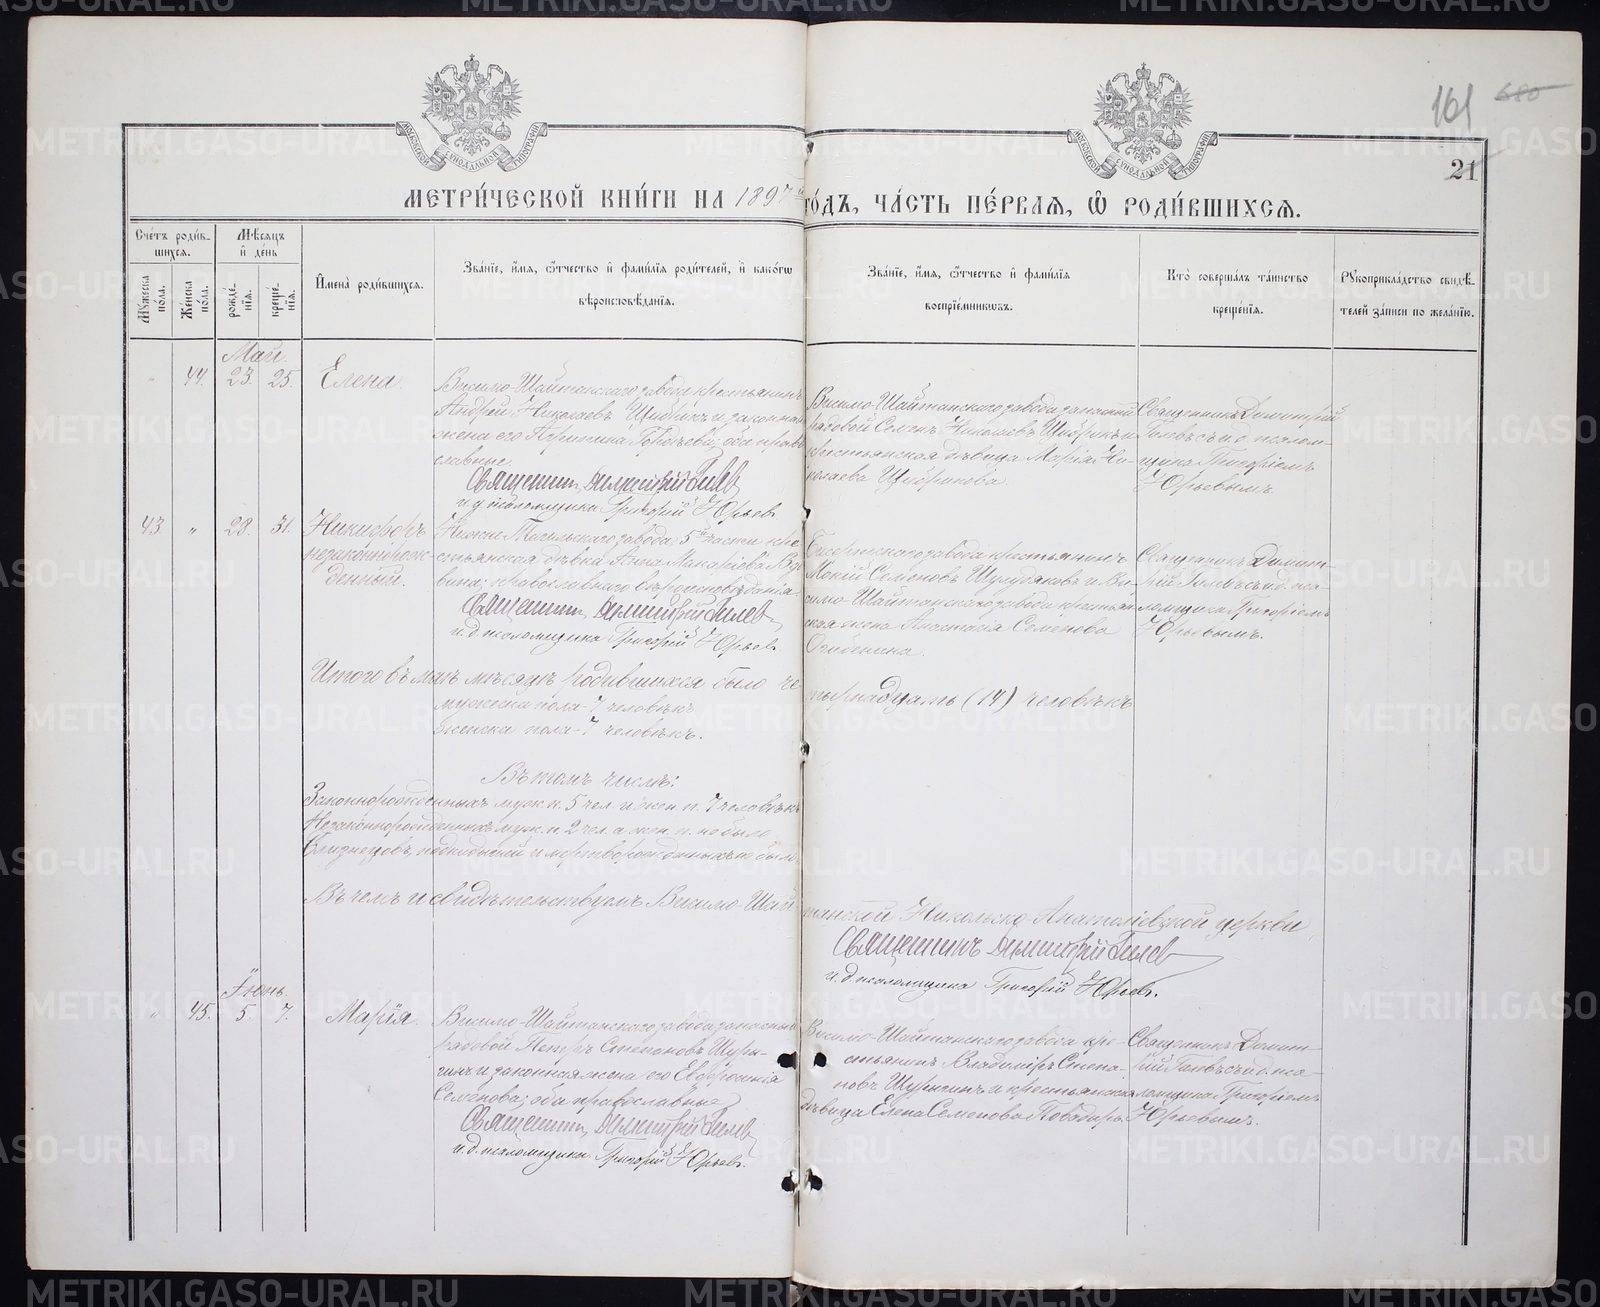 161 680
21
МОСКОВСКОЙ СѴНОДАЛЬНОЙ ТИПОГРАФІИ
МОСКОВСКОЙ СѴНОДАЛЬНОЙ ТИПОГРАФІИ
МЕТРИ́ЧЕСКОЙ КНИ́ГИ НА 1897 й ГО́ДЪ, ЧА́СТЬ ПЕ́РВАЯ, Ѽ РОДИ́ВШИХСѦ.
Сче́тъ роди́в-
шихсѧ.
Мꙋжеска
по́ла.
Же́нска
по́ла.
Мѣ́сѧцъ
и҆ де́нь
рожде́-
нїѧ.
креще́-
нїѧ.
И҆мена̀ роди́вшихсѧ.
Зва́нїе, и҆́мѧ, ѻ҆́тчество и҆ фами́лїѧ роди́телей, и҆ како́гѡ
вѣроисповѣ́данїѧ.
Зва́нїе, и҆́мѧ, ѻ҆́тчество и҆ фами́лїѧ
воспрїе́мникѡвъ.
Кто̀ соверша́лъ та́инство
креще́нїѧ.
Рꙋкоприкла́дство свидѣ́-
телей за́писи по жела́нїю.
Май.
" 44. 23. 25. Елена.
Висимо-Шайтанскаго завода крестьянинъ
Андрей Николаевъ Щибрикъ и законная
жена его Агрипина Гордѣева; оба право-
славные
Священник Димитрій Гилев
и. д. псаломщика Григорій Юрьев.
Висимо-Шайтанскаго завода запасный
рядовой Семенъ Николаевъ Щибрикъ и
крестьянская дѣвица Марія Ни-
колаева Щибрикова.
Священникъ Димитрій
Гилевъ съ и. д. псалом-
щика Григоріемъ
Юрьевымъ.
43. " 28. 31. Никифоръ
незаконнорож-
денный.
Нижне-Тагильскаго завода 5й части кре-
стьянская дѣвка Анна Макаріева
православнаго вѣроисповѣданія.
Священник Димитрій Гилев
и. д. псаломщика Григорій Юрьев.
завода крестьянинъ
Мокій Семеновъ и Ви-
симо-Шайтанскаго завода крестьян-
ская жена Анастасія Семенова
Священникъ Димит-
рій Гилевъ съ и. д. пса-
ломщика Григоріемъ
Юрьевымъ.
Итого въ маѣ мѣсяцѣ родившихся было че-
тырнадцать (14) человѣкъ
мужеска пола-7 человѣкъ
женска пола-7 человѣкъ.
Въ томъ числѣ:
Законнорожденныхъ муж. п. 5 чел. и жен. п. 7 человѣкъ
Незаконнорожденныхъ муж. п. 2 чел. а жен. п. не было
Близнецовъ, подкидышей и мертворожденныхъ не было.
Въ чемъ и свидѣтельствуемъ Висимо-Шай-
танской Николаевско-Анатоліевской церкви
Священникъ Димитрій Гилев
и. д. псаломщика Григорій Юрьев.
Іюнь.
" 45. 5. 7. Марія.
Висимо-Шайтанскаго завода запасный
рядовой Петръ Степановъ Шуры-
гинъ и законная жена его Евфросинія
Семенова; оба православные
Священник Димитрій Гилев
и. д. псаломщика Григорій Юрьев.
Висимо-Шайтанскаго завода кре-
стьянинъ Владиміръ Степа-
новъ Шурыгинъ и крестьянская
дѣвица Елена Семенова
Священникъ Димит-
рій Гилевъ съ и. д. пса-
ломщика Григоріемъ
Юрьевымъ.
METRIKI.GASO-URAL.RU